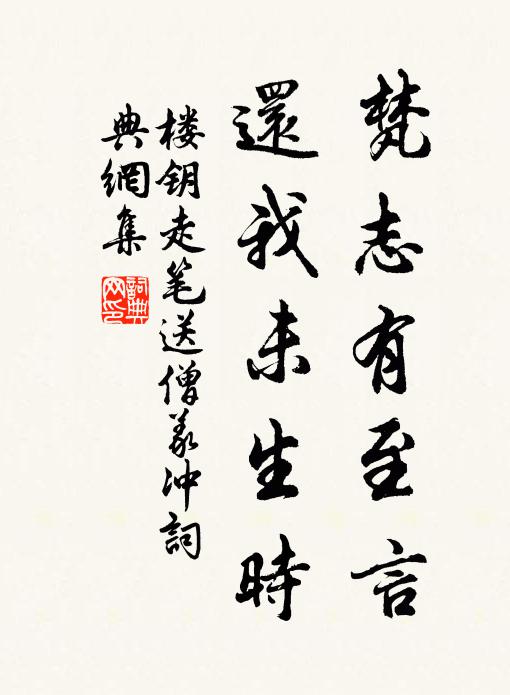 梵志有至言
還我未生時
楼钥走笔送僧义冲詞
典網集
詞典网印